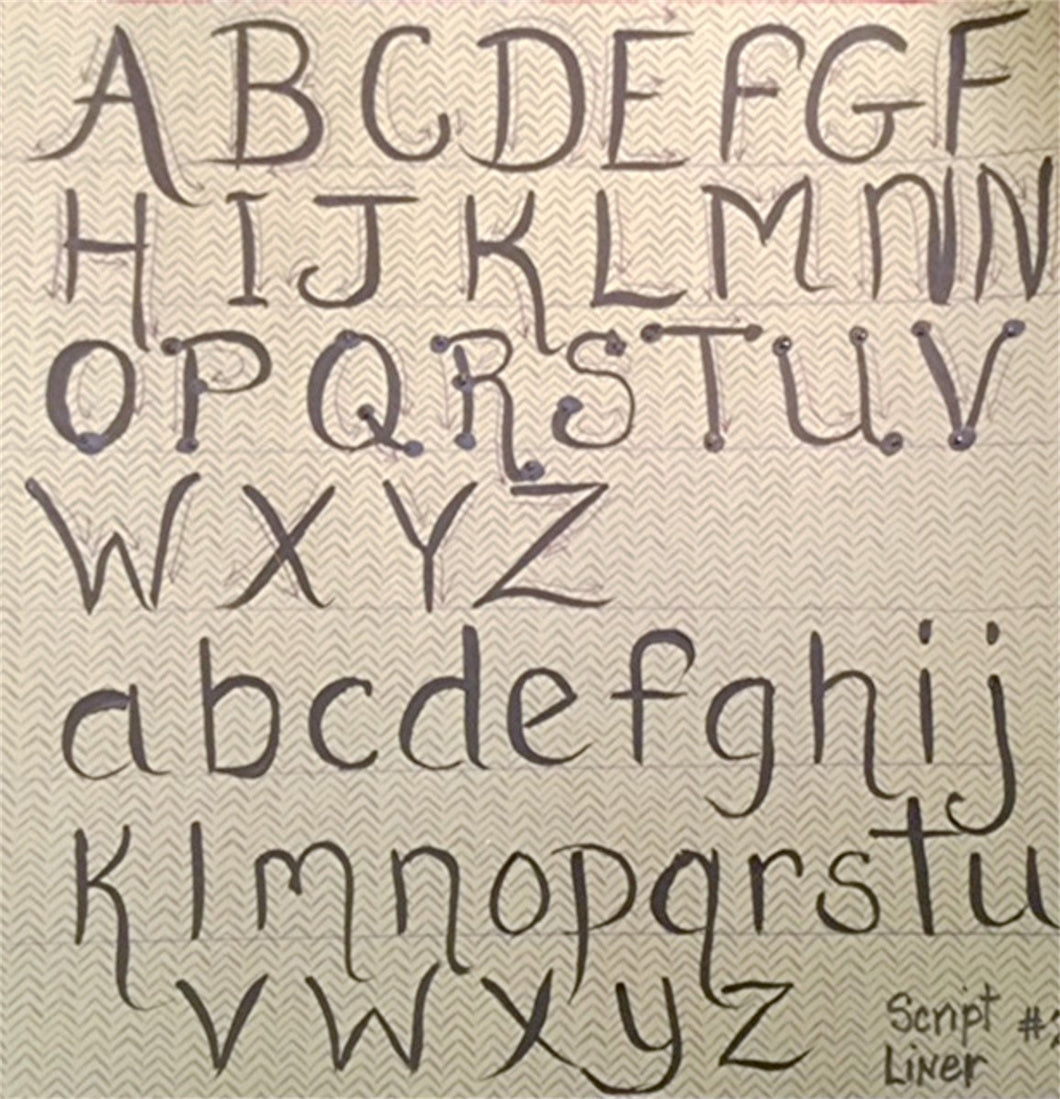 A B C D E f G F
H I J K L M N N
O P Q R S T U V
W X Y Z
a b c d e f g h i j
k l m n o p q r s t u
v w x y z
Script #
Liner